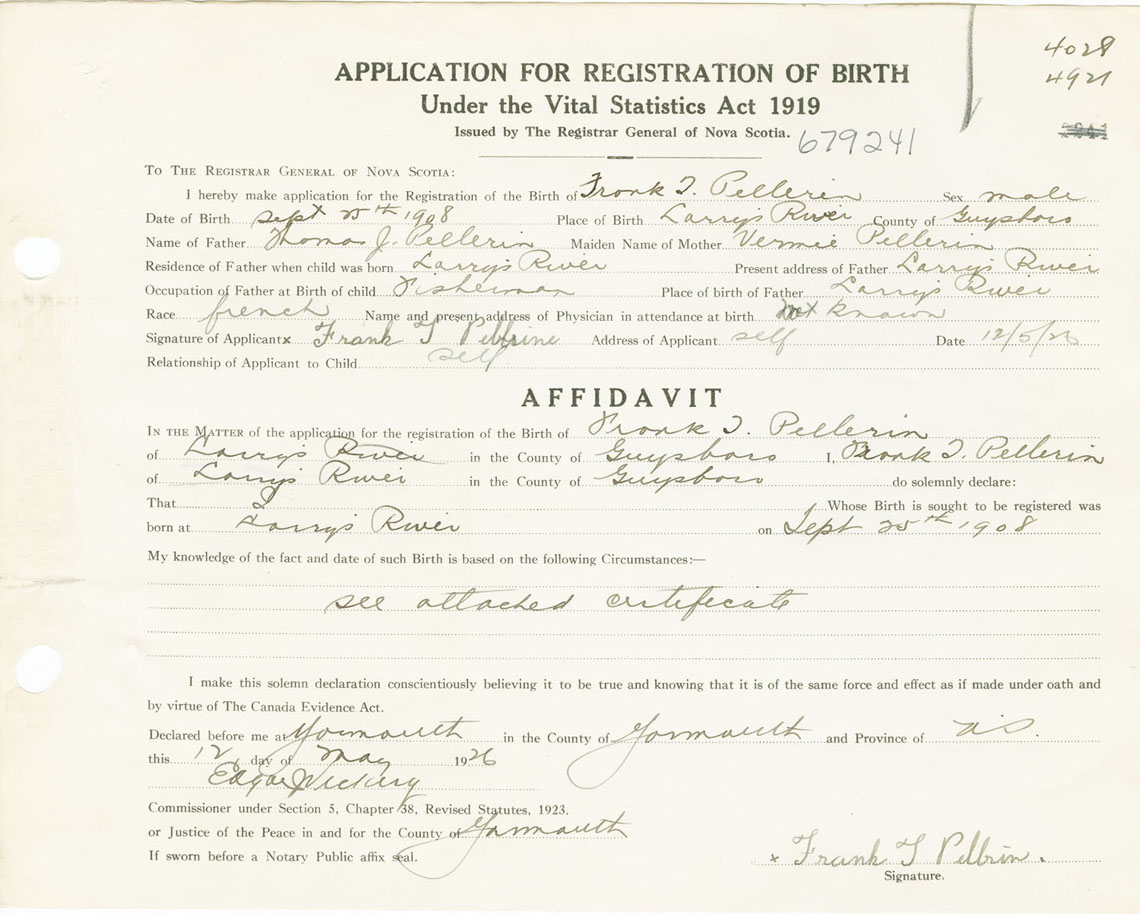 4028
4921
APPLICATION FOR REGISTRATION OF BIRTH
Under the Vital Statistics Act 1919
Issued by The Registrar General of Nova Scotia.
679241
TO THE REGISTRAR GENERAL OF NOVA SCOTIA:
I hereby make application for the Registration of the Birth of Frank T. Pellerin Sex male
Date of Birth Sept 25th 1908 Place of Birth Larry's River County of Guysboro
Name of Father Thomas J. Pellerin Maiden Name of Mother Vermie Pellerin
Residence of Father when child was born Larry's River Present address of Father Larry's River
Occupation of Father at Birth of child Fisherman Place of birth of Father Larry's River
Race french Name and present address of Physician in attendance at birth not known
Signature of Applicant x Frank T Pellrine Address of Applicant self Date 12/5/26
Relationship of Applicant to Child self
AFFIDAVIT
IN THE MATTER of the application for the registration of the Birth of Frank T. Pellerin
of Larrys River in the County of Guysboro I, Frank T. Pellerin
of Larrys River in the County of Guysboro do solemnly declare:
That I Whose Birth is sought to be registered was
born at Larry's River on Sept 25th 1908
My knowledge of the fact and date of such Birth is based on the following Circumstances:—
see attached certificate
I make this solemn declaration conscientiously believing it to be true and knowing that it is of the same force and effect as if made under oath and
by virtue of The Canada Evidence Act.
Declared before me at Yarmouth in the County of Yarmouth and Province of NS.
this 12 day of May 1926
Edgar Vickery
Commissioner under Section 5, Chapter 38, Revised Statutes, 1923.
or Justice of the Peace in and for the County of Yarmouth
If sworn before a Notary Public affix seal.
x Frank T Pellrin.
Signature.